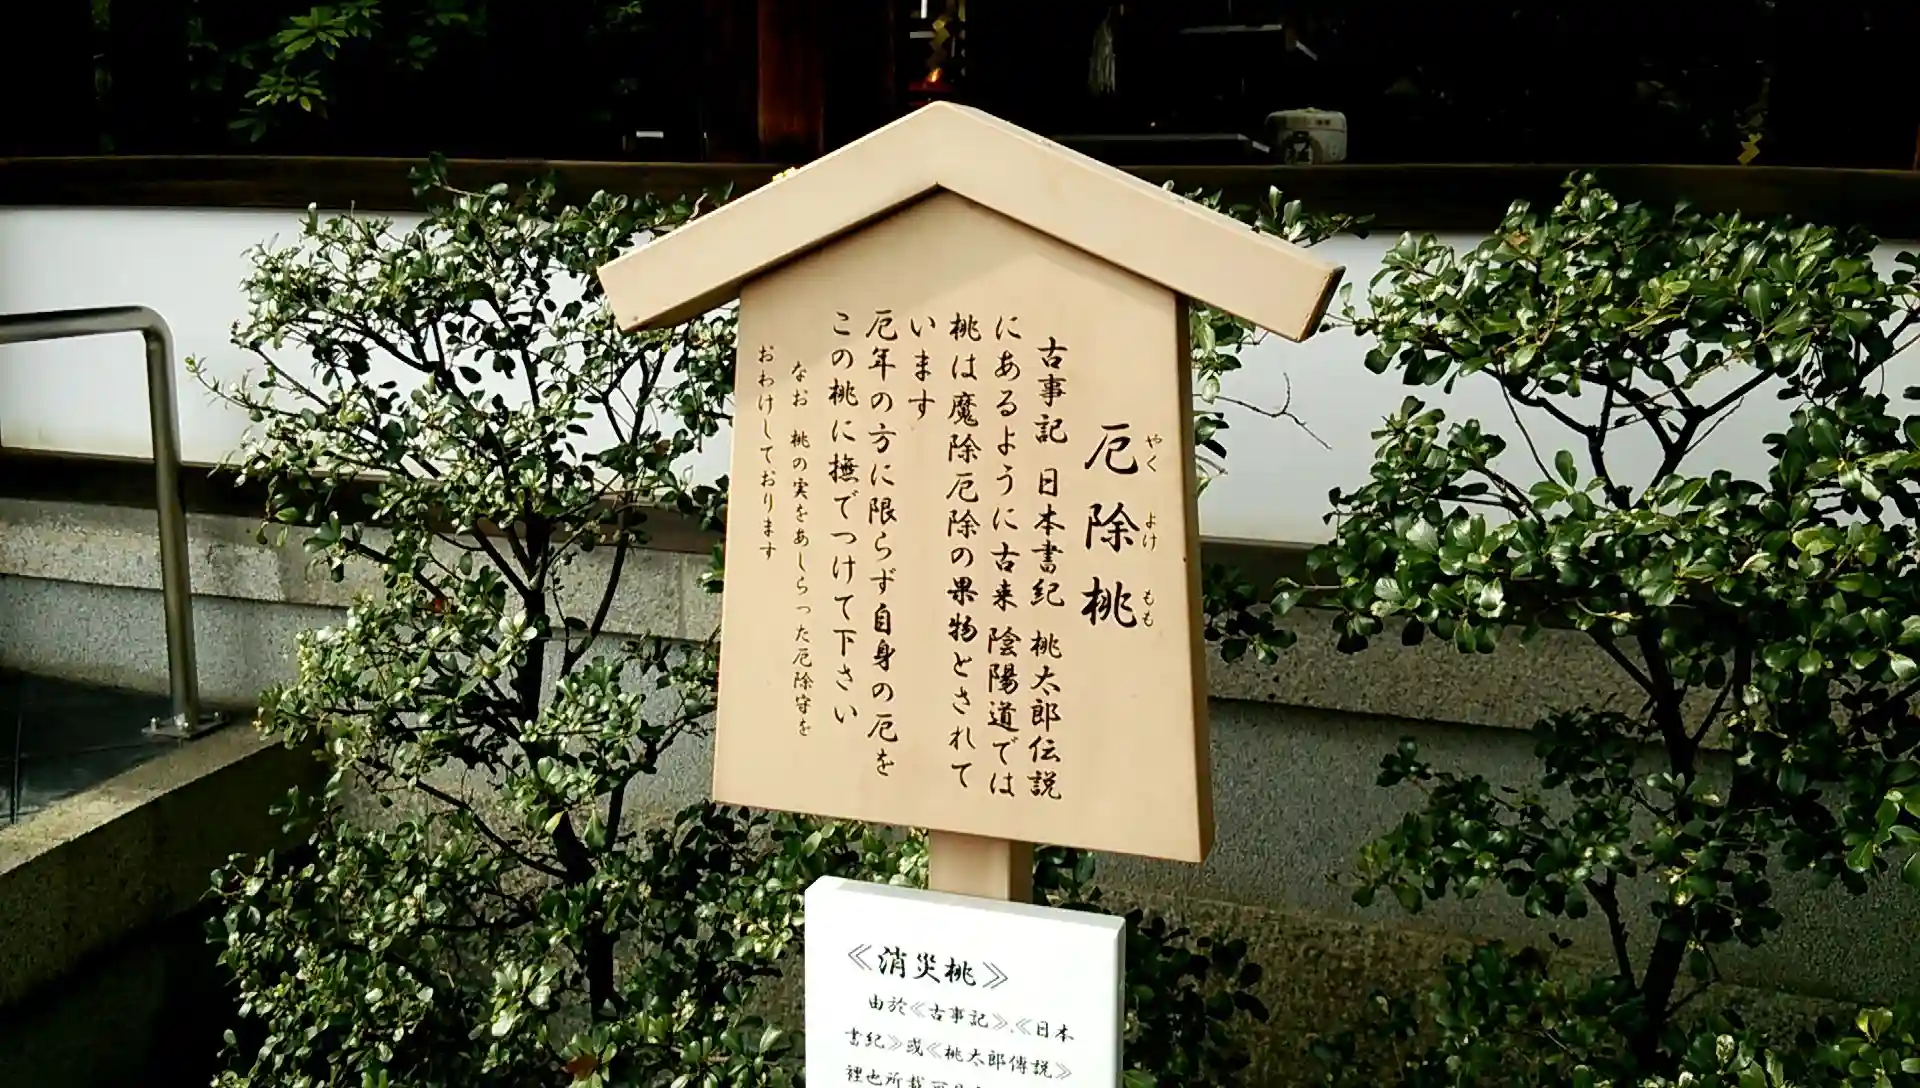 厄除桃
やく よけ もも
古事記 日本書紀 桃太郎伝説
にあるように古来 陰陽道では
桃は魔除厄除の果物とされて
います
厄年の方に限らず自身の厄を
この桃に撫でつけて下さい
なお 桃の実をあしらった厄除守を
おわけしております
《消災桃》
由於《古事記》、《日本
書紀》或《桃太郎傳說》
裡也所載